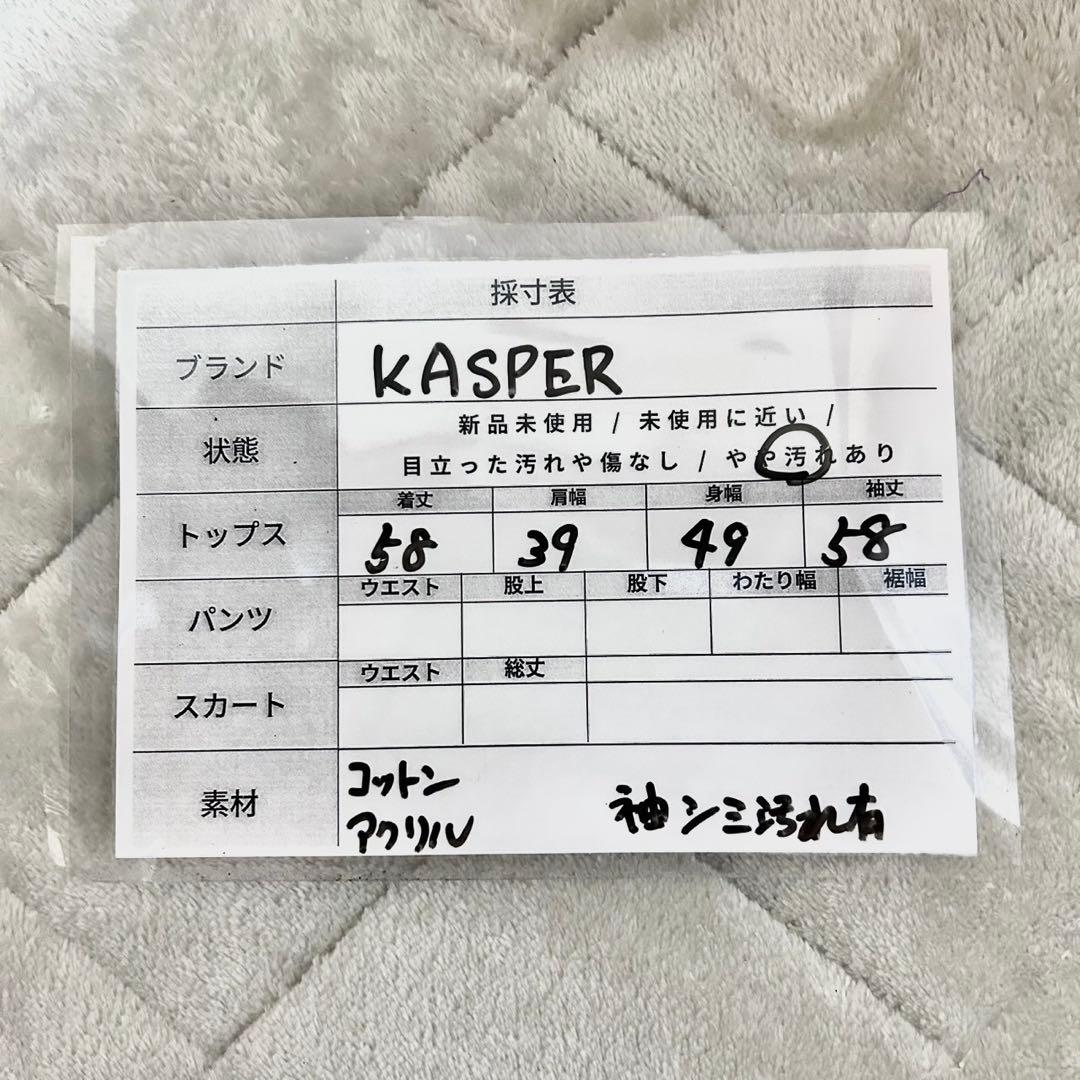 採寸表
ブランド KASPER
状態 新品未使用 / 未使用に近い /
目立った汚れや傷なし / やや汚れあり
トップス 着丈 肩幅 身幅 袖丈
58 39 49 58
パンツ ウエスト 股上 股下 わたり幅 裾幅
スカート ウエスト 総丈
素材 コットン
アクリル 袖シミ汚れ有